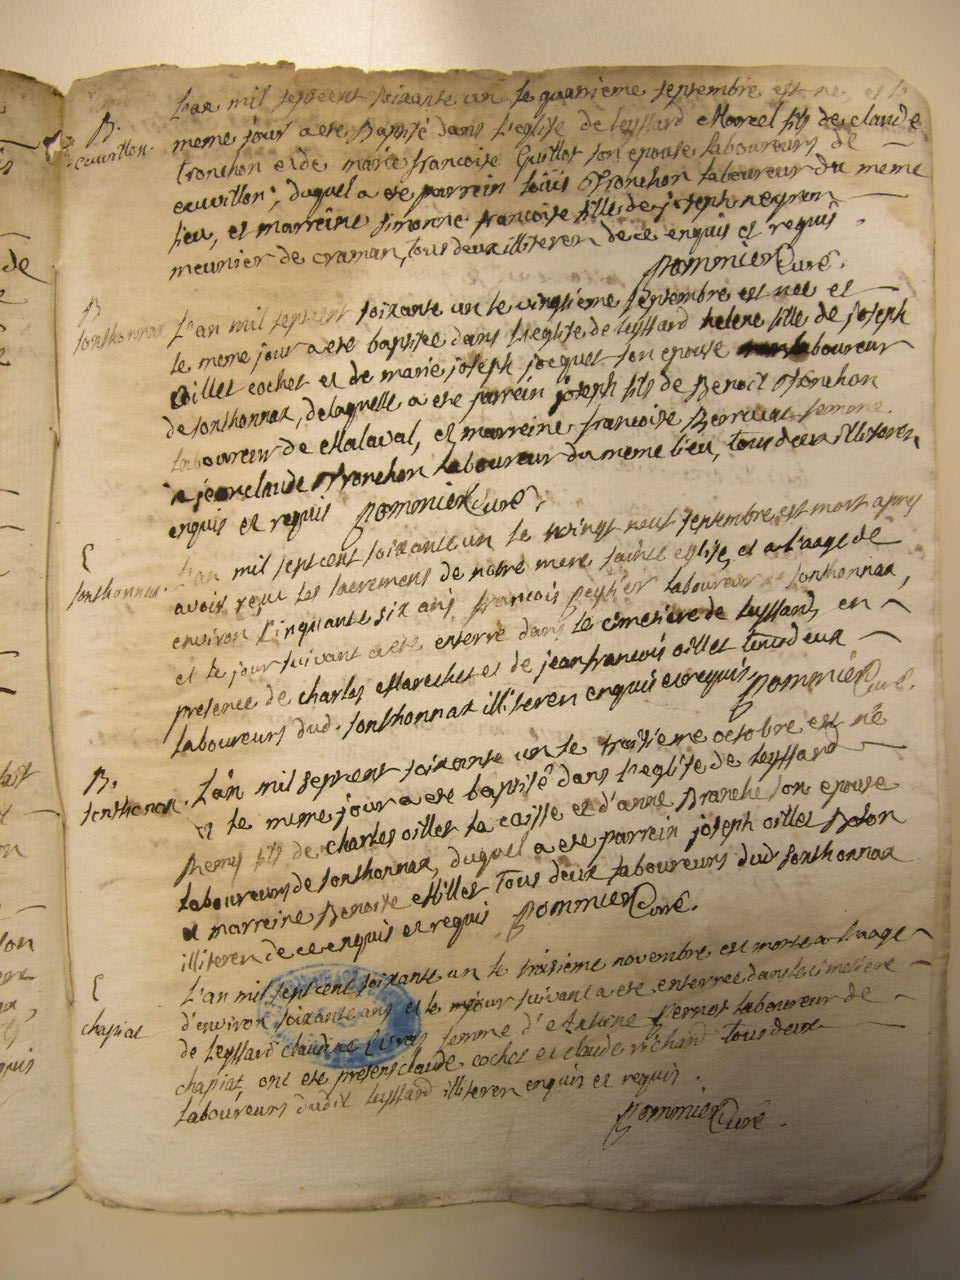 L'an mil septcent soixante un le quatrieme septembre est né, et le
B.
meme jour a eté Baptisé dans L'eglise de leyssard Marcel fils de claude
cauvillon.
tronchon et de marie francoise Guillot son epouse laboureurs de
cauvillon; duquel a eté parrein loüis tronchon laboureur du meme
lieu, et marreine simonne francoise fille de joseph
meunier de craman, tous deux illiteren de ce enquis et requis.
pommier Curé.
B
sonthonnax
L'an mil septcent soixante un le vingtieme septembre est nee et
le meme jour a eté baptisee dans L'eglise de leyssard helene fille de joseph
oillet cochet et de marie joseph jocquet son epouse laboureur
de sonthonnax, de laquelle a eté parrein joseph fils de Benoit tronchon
laboureur de Malaval, et marreine francoise femme
a jean claude tronchon laboureur du meme lieu, tous deux illiteren
enquis et requis pommier Curé.
sonthonnax.
L'an mil septcent soixante un le vingt neuf septembre est mort apres
avoir reçu les sacremens de notre mere sainte eglise, et a l'aage de
environ cinquante six ans francois laboureur sonthonnax,
et le jour suivant a eté enterré dans le cimetiere de leyssard, en
presence de charles Marechet et de jean francois oillet tous deux
laboureurs dud. sonthonnax illiteren enquis et requis pommier Curé.
B.
sonthonax.
L'an mil septcent soixante un le troisieme octobre est né
et le meme jour a eté baptisé dans L'eglise de leyssard
Remy fils de charles oillet la caisse et d'anne Branche son epouse
laboureurs de sonthonnax, duquel a eté parrein joseph oillet
et marreine Benoite Millet tous deux laboureurs dud sonthonnax
illiteren de ce enquis et requis pommier Curé.
L'an mil septcent soixante un le troisieme novembre est morte a l'aage
d'environ soixante ans et le jour suivant a eté enterree dans le cimetiere
chapiat
de leyssard claudine femme d'Antoine pernot laboureur de
chapiat, ont eté presens claude cochet et claude richard tous deux
laboureurs dudit leyssard illiteren enquis et requis.
pommier Curé.